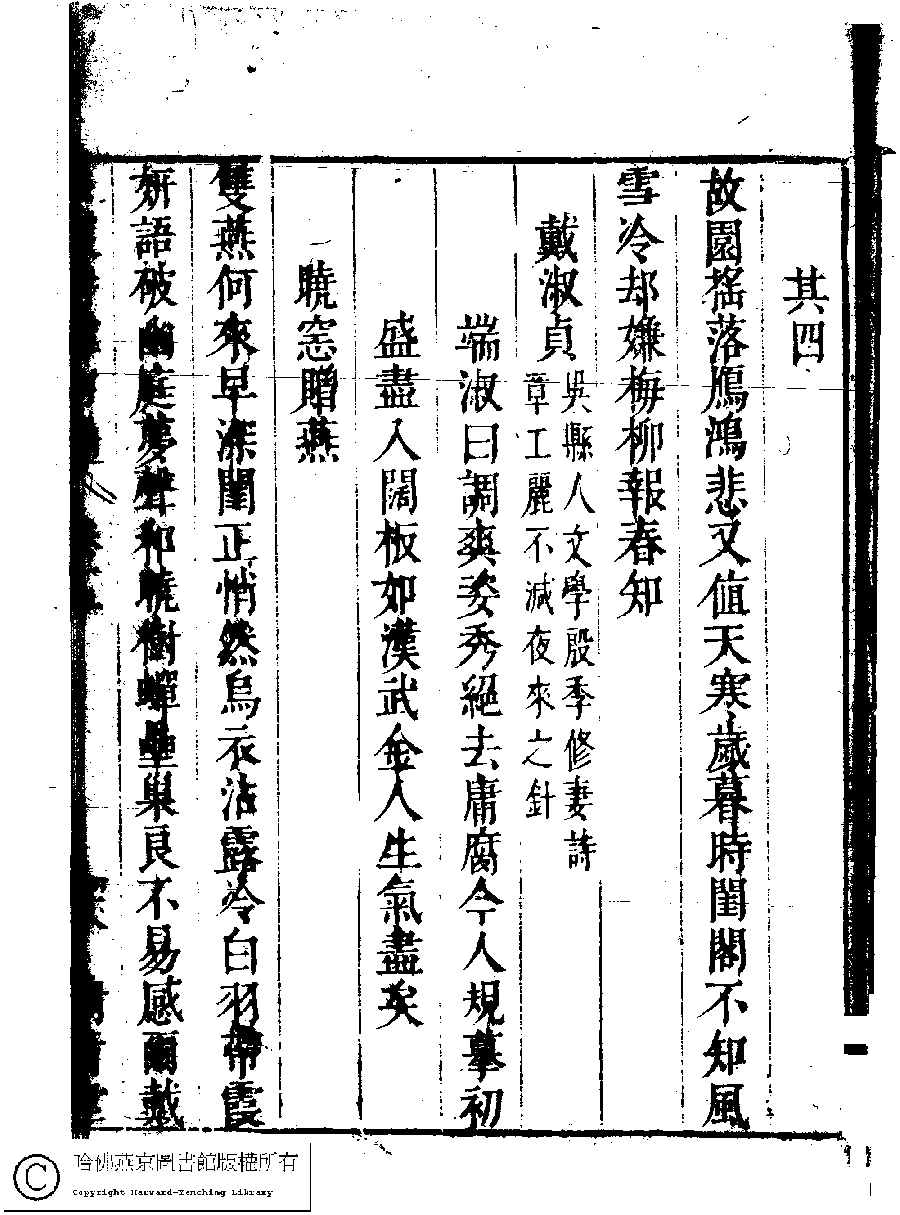 其四
故園搖落鴈鴻悲又值天寒歲暮時閨閣不知風
雪冷却嫌梅柳報春知
戴淑貞
吳縣人文學殷季修妻詩
章工麗不減夜來之針
端淑曰調爽姿秀絕去庸腐今人規摹初
盛盡入闊板如漢武金人生氣盡矣
曉窓贈燕
雙燕何來早深閨正悄然烏衣沾露冷白羽帶霞
妍語破幽庭夢聲和曉樹蟬壘巢良不易感爾戴
哈佛燕京圖書館版權所有
Copyright Harvard-Yenching Library